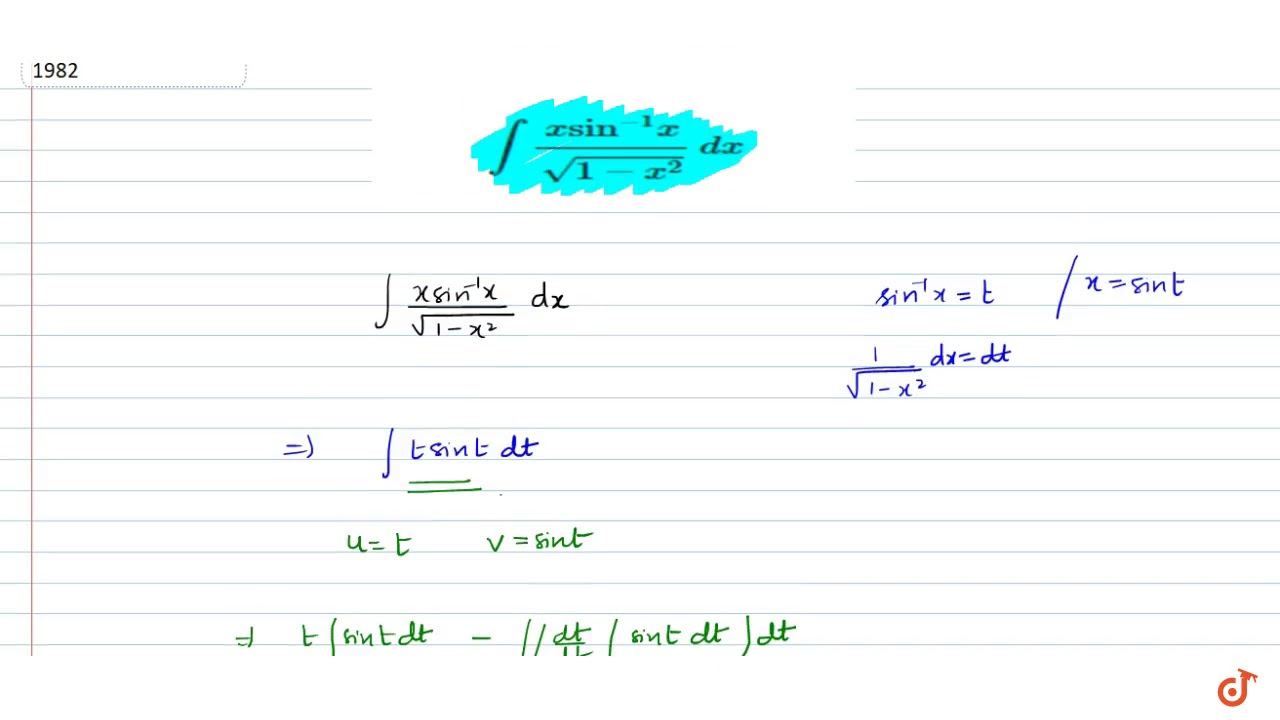 1982
∫ x sin⁻¹x / √(1 − x²) dx
∫ x sin⁻¹x / √(1 − x²) dx    sin⁻¹x = t / x = sint
1 / √(1 − x²) dx = dt
⇒ ∫ t sint dt
u = t    v = sint
⇒ t ∫ sint dt − ∫ ( dt/dt ∫ sint dt ) dt